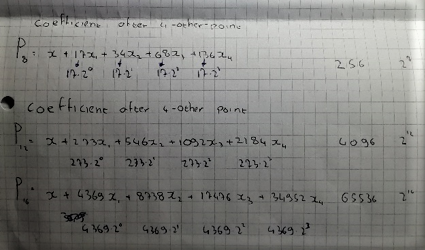 Coefficient after 4-other-point
P₈ = x + 17x₁ + 34x₂ + 68x₃ + 136x₄ 256 2⁸
17·2⁰ 17·2¹ 17·2² 17·2³
Coefficient after 4-other point
P₁₂ = x + 273x₁ + 546x₂ + 1092x₃ + 2184x₄ 4096 2¹²
273·2⁰ 273·2¹ 273·2² 273·2³
P₁₆ = x + 4369x₁ + 8738x₂ + 17476x₃ + 34952x₄ 65536 2¹⁶
4369·2⁰ 4369·2¹ 4369·2² 4369·2³